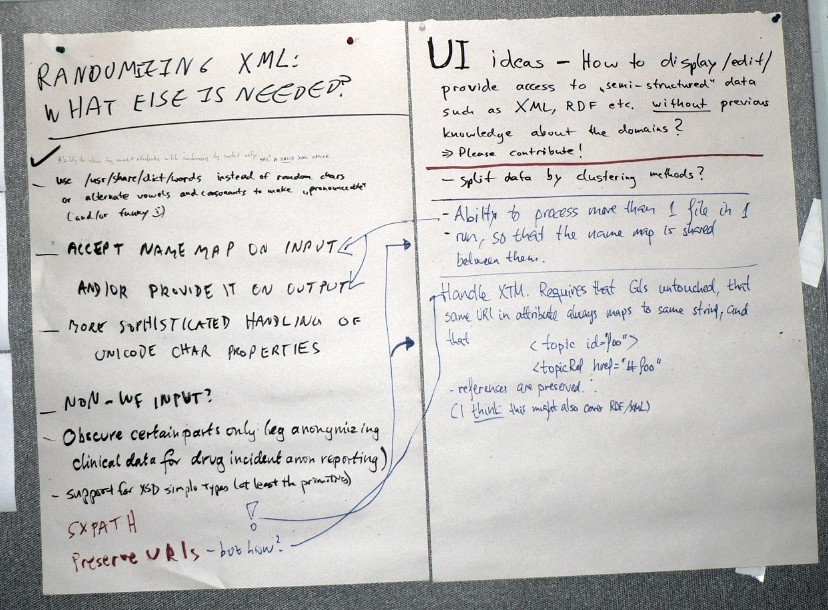 RANDOMIZING XML:
WHAT ELSE IS NEEDED?
use /usr/share/dict/words instead of random chars
or alternate vowels and consonants to make "pronounceable"
(and/or funny :)
- ACCEPT NAME MAP ON INPUT
AND/OR PROVIDE IT ON OUTPUT
- MORE SOPHISTICATED HANDLING OF
UNICODE CHAR PROPERTIES
- NON-WF INPUT?
- Obscure certain parts only (eg anonymizing
clinical data for drug incident anon reporting)
- support for XSD simple types (at least the primitives)
SXPATH
!
Preserve URIs - but how?
UI ideas - How to display/edit/
provide access to "semi-structured" data
such as XML, RDF etc. without previous
knowledge about the domains?
⇒ Please contribute!
- split data by clustering methods?
- Ability to process more than 1 file in 1
- run, so that the name map is shared
between them.
Handle XTM. Requires that GIs untouched, that
same URI in attribute always maps to same string, and
that
<topic id="foo">
<topicRef href="#foo"
- references are preserved.
(I think this might also cover RDF/XML)